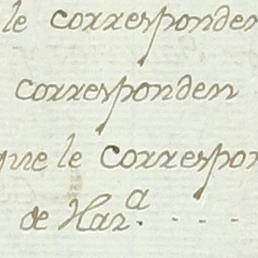 le corresponden
corresponden
que le correspon
de Har.ª . . . .